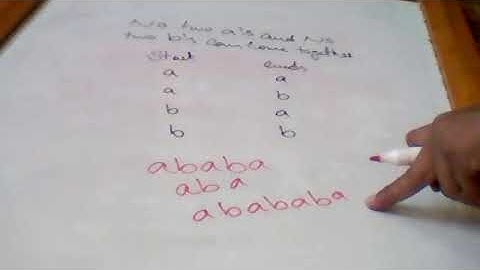 No two a's and no
two b's can come together
Start ends
a a
a b
b a
b b
ababa
aba
abababa